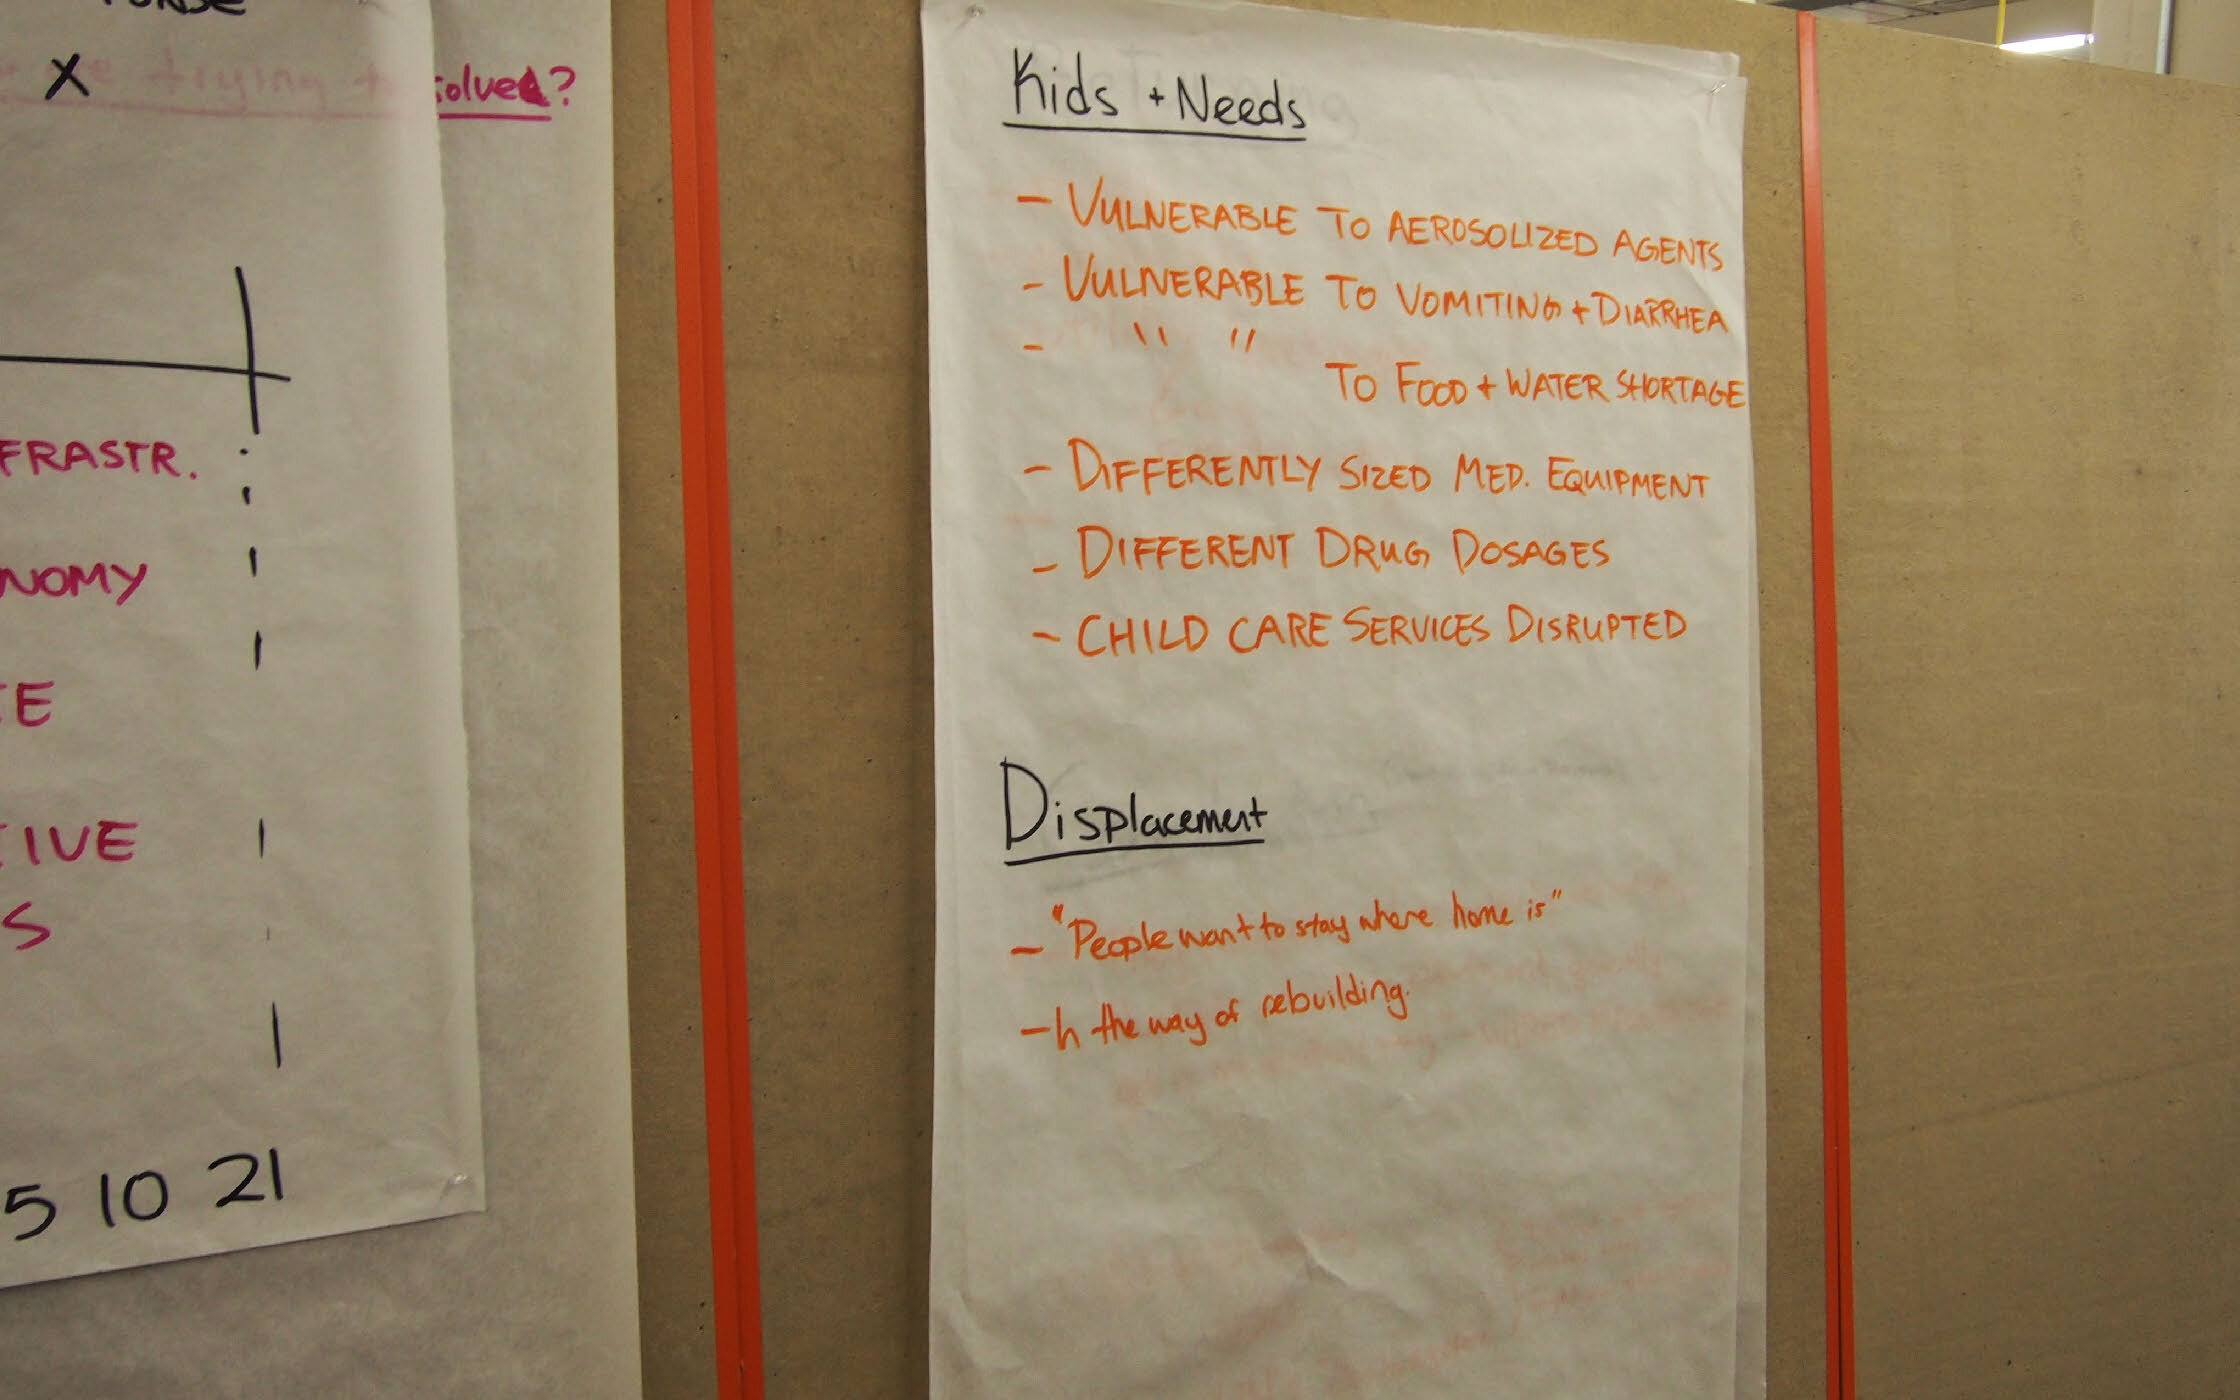 X
trying to solved?
FRASTR.
NOMY
E
IVE
S
5 10 21
Kids + Needs
- VULNERABLE TO AEROSOLIZED AGENTS
- VULNERABLE TO VOMITING + DIARRHEA
- " "
TO FOOD + WATER SHORTAGE
- DIFFERENTLY SIZED MED. EQUIPMENT
- DIFFERENT DRUG DOSAGES
- CHILD CARE SERVICES DISRUPTED
Displacement
- "People want to stay where home is"
- In the way of rebuilding.